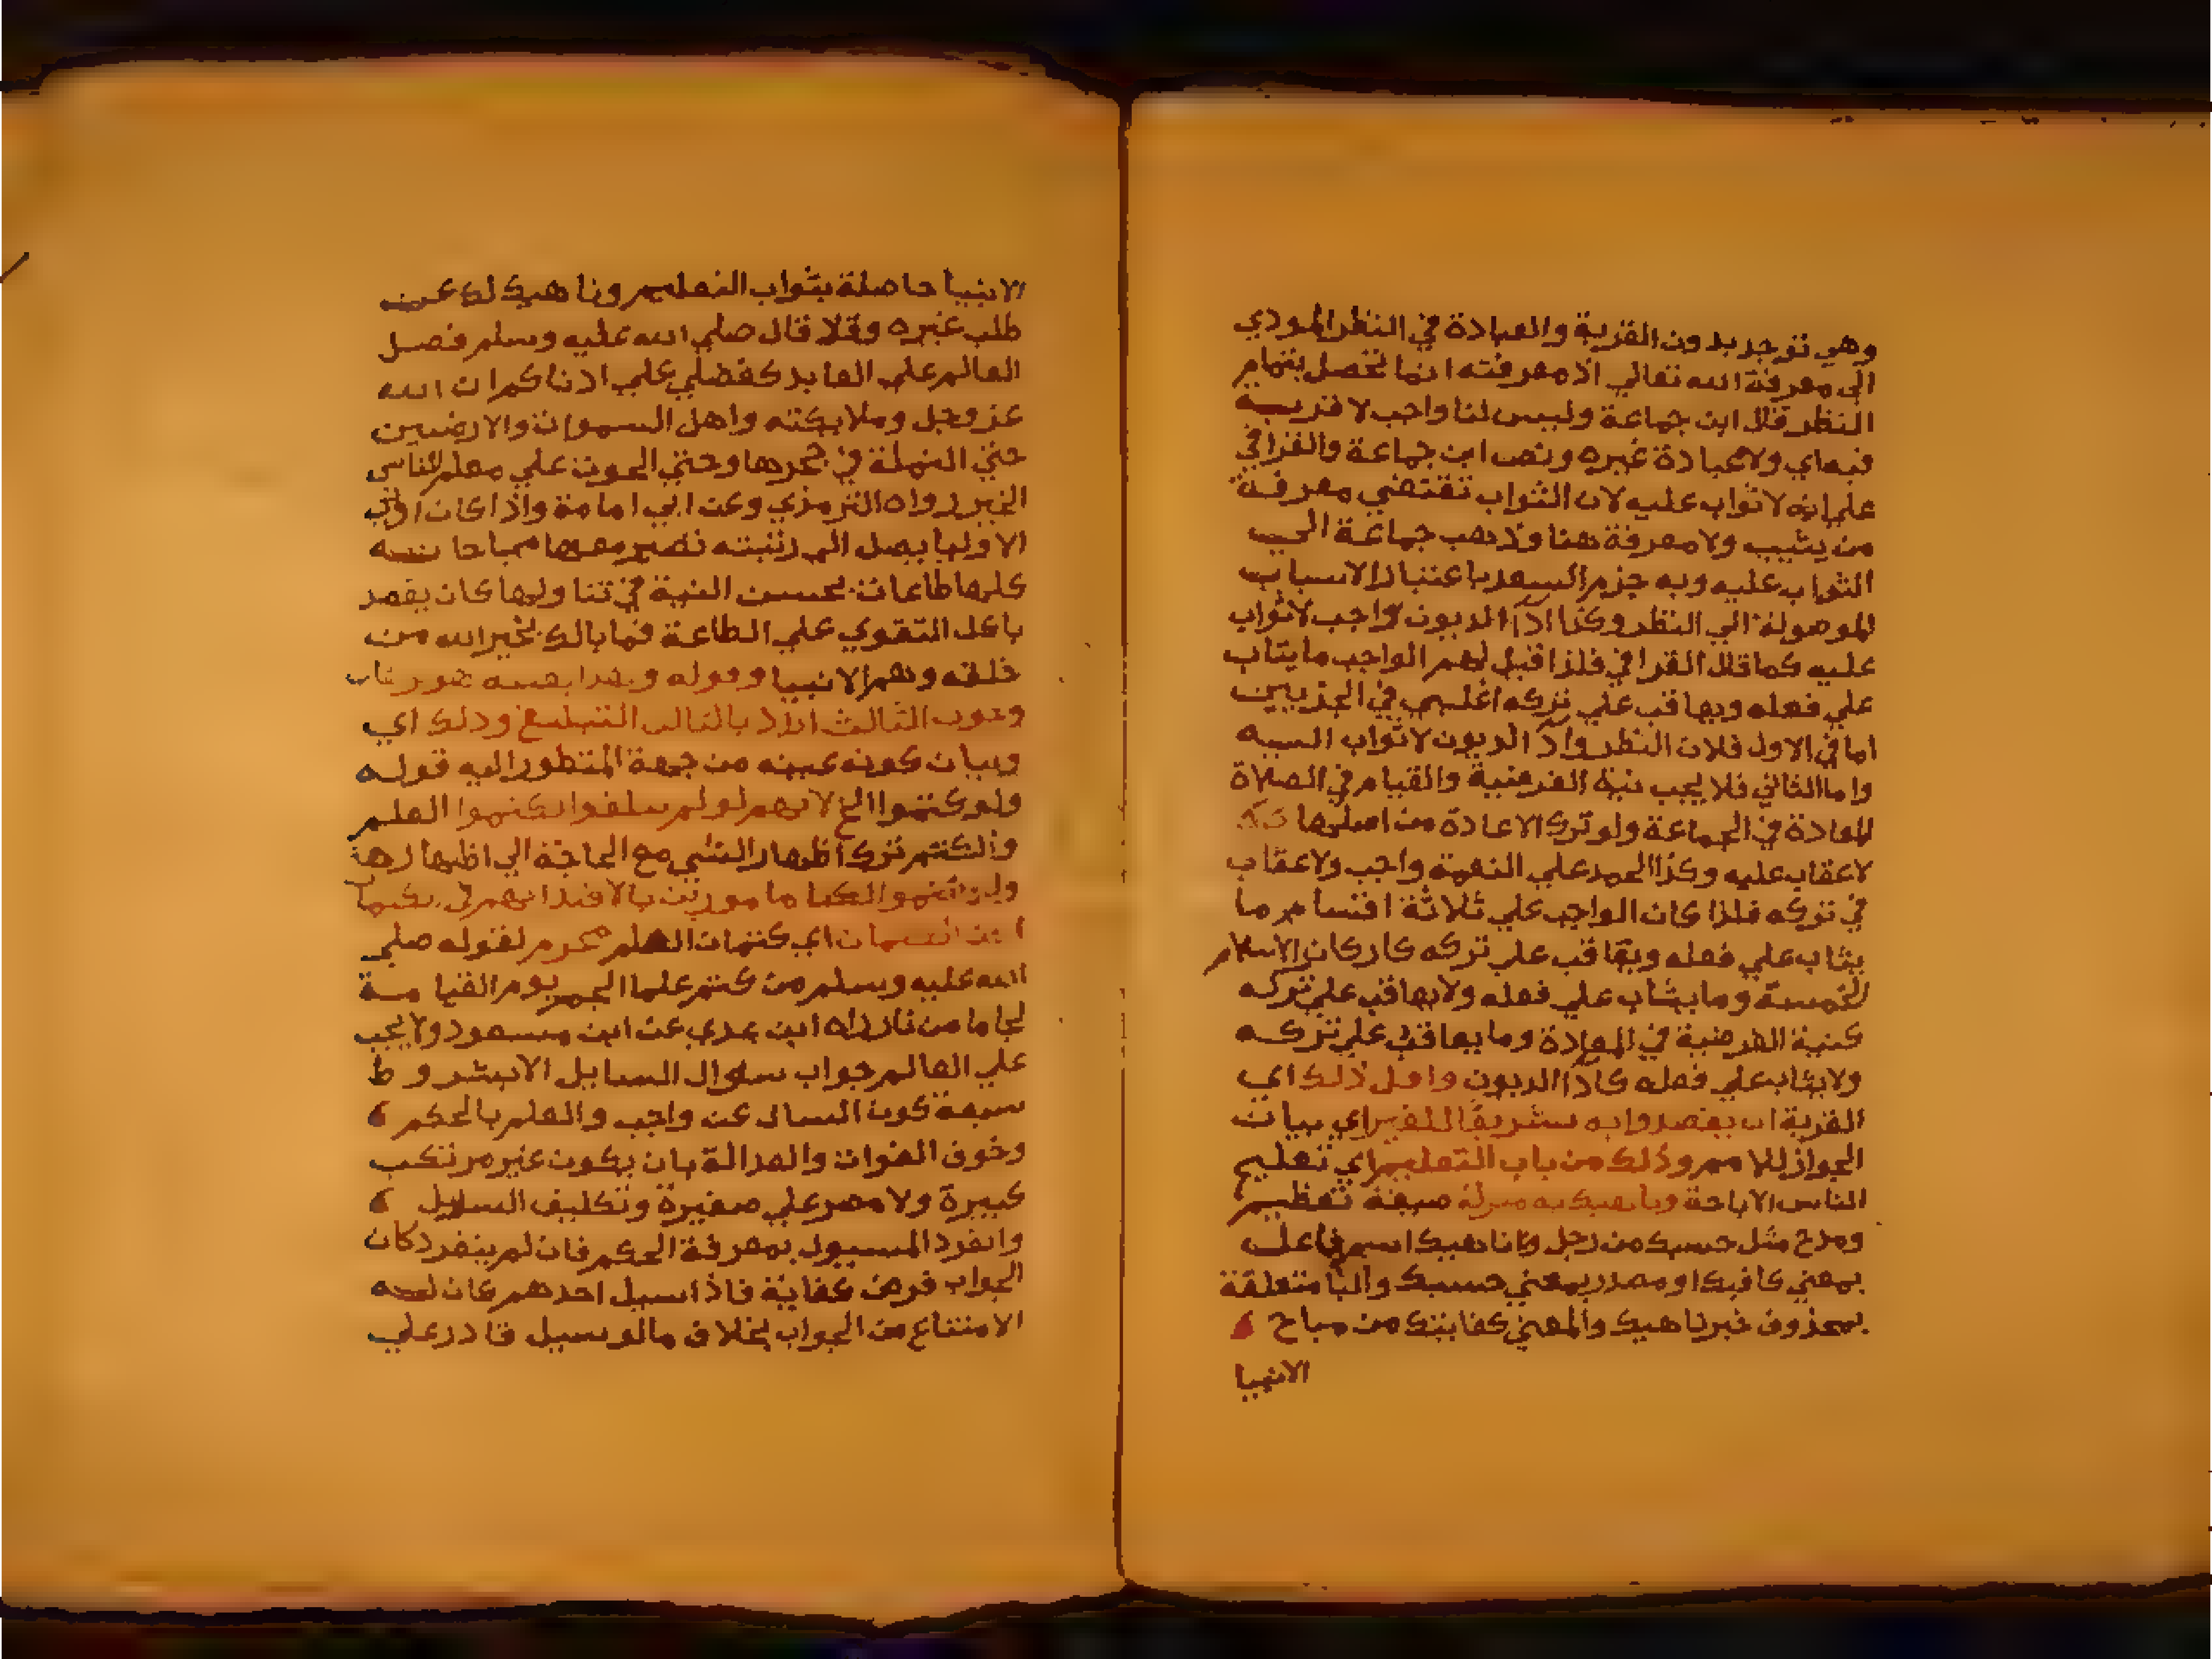 وهي توجد بدون القربة والعبادة في النظر المودي
الى معرفة الله تعالي اذ معرفته انما تحصل بتمام
النظر قال ابن جماعة وليس لنا واجب لا قربه
فيه اي ولا عبادة غيره ونص ابن جماعة والقرافي
علي انه لا ثواب عليه لان الثواب تقتضي معرفة
من يثيب ولا معرفة هنا وذهب جماعة الي
الثواب عليه وبه جزم السعد باعتبار الاسباب
الموصولة الي النظر وكذا اذا الديون واجب لا ثواب
عليه كما قال القرافي فلذا قيل لهم الواجب ما يثاب
علي فعله ويعاقب علي تركه اغلبي في الجزيين
اما في الاول فلان النظر واذا الديون لا ثواب اليه
واما الثاني فلا يجب نية الفرضية والقيام في الصلاة
المعادة في الجماعة ولو ترك الاعادة من اصلها
لا عقاب عليه وكذا الحمد علي النعمة واجب ولا عقاب
في تركه فلذا كان الواجب علي ثلاثة اقسام ما
يثاب علي فعله ويعاقب علي تركه كاركان الاسلام
الخمسة وما يثاب علي فعله ولا يعاقب علي تركه
كنية الفرضية في المعادة وما يعاقب علي تركه
ولا يثاب علي فعله كاذا الديون واقل ذلك اي
القربة ان يقصدوا به تشريفا للغير اي بيان
الجواز للامم وذلك من باب التعليم اي تعليم
الناس الاباحة وناهيك به منزلة صيغة تعظيم
ومدح مثل حسبك من رجل وناهيك اسم فاعل
بمعني كافيك او مصدر بمعني حسبك والبا متعلقة
بمحذوف خبر ناهيك والمعني كفايتك من مباح
الانبيا
الانبيا حاصلة بثواب التعليم وناهيك لك عن
طلب غيره وقلا قال صلي الله عليه وسلم فضل
العالم علي العابد كفضلي علي ادناكم ان الله
عز وجل وملايكته واهل السموات والارضين
حتي النملة في جحرها وحتي الحوت علي معلم الناس
الخير رواه الترمذي وعن ابي امامة واذا كان ادني
الاوليا يصل الي رتبته تصير معها مباحاته
كلها طاعات بحسن النية في تناولها كان يقصد
باكل التقوي علي الطاعة فما بالك بخير الله من
خلقه وهم الانبيا وقوله وبهذا بعينه هو
وجوب الثالث اراد بالثالث التبليغ وذلك اي
وبيان كونه عينه من جهة المنظور اليه قوله
ولو كتموا الخ لانهم لو لم يبلغوا لكتموا العلم
والكتم ترك اظهار الشي مع الحاجة الي اظهاره
ولو كتموا لكنا مامورين بالاقتدا بهم في
اي كتمان العلم محرم لقوله صلي
الله عليه وسلم من كتم علما الجم يوم القيامة
لجاما من نار رواه ابن عدي عن ابن مسعود ولا يجب
علي العالم جواب سوال السايل الا بشروط
سبعة كون السال عن واجب والعلم بالحكم
وخوف الفوات والعدالة بان يكون غير مرتكب
كبيرة ولا مصر علي صغيرة وتكليف السايل
وانفرد المسيول بمعرفة الحكم فان لم ينفرد كان
الجواب فرض كفاية فاذا سيل احدهم كان له
الامتناع من الجواب بخلاف ما لو سيل قادر علي